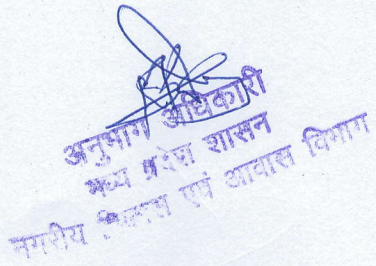 अनुभाग अधिकारी
मध्य प्रदेश शासन
नगरीय विकास एवं आवास विभाग